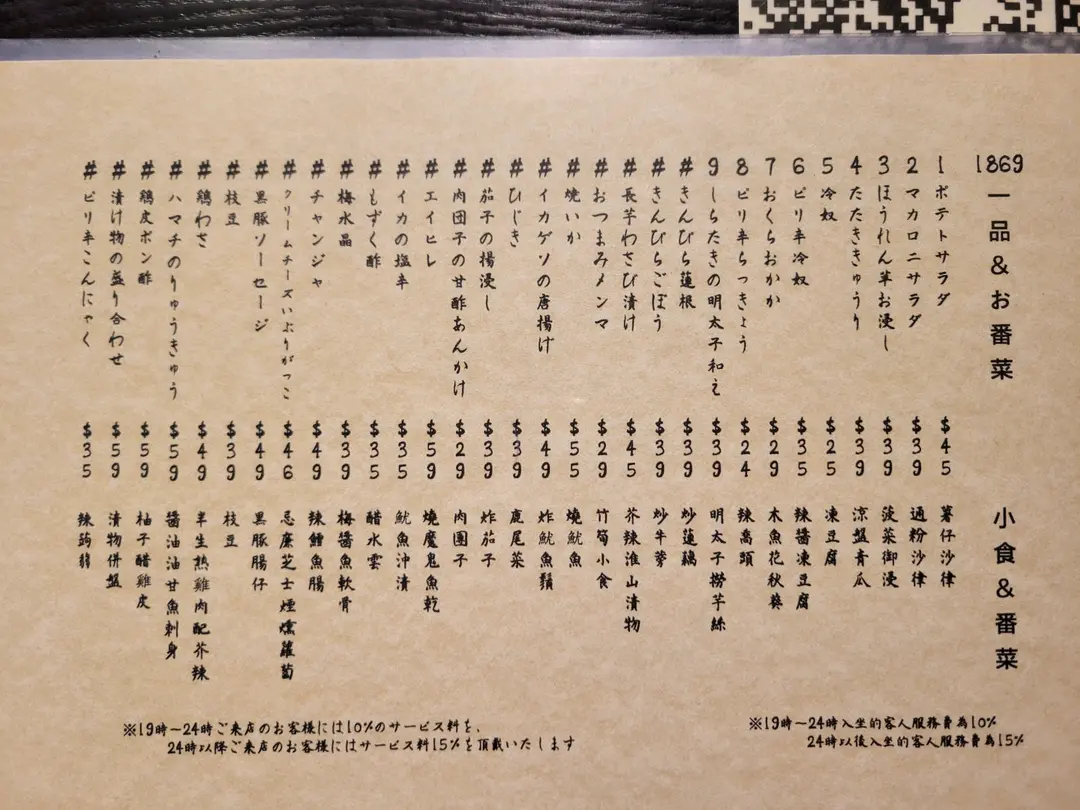 1869一品&お番菜 小食&番菜
1 ポテトサラダ $45 薯仔沙律
2 マカロニサラダ $39 通粉沙律
3 ほうれん草お浸し $39 菠菜御浸
4 たたききゅうり $39 涼盤青瓜
5 冷奴 $25 凍豆腐
6 ピリ辛冷奴 $35 辣醬凍豆腐
7 おくらおかか $29 木魚花秋葵
8 ピリ辛らっきょう $24 辣蕎頭
9 しらたきの明太子和え $39 明太子撈芋絲
# きんぴら蓮根 $39 炒蓮藕
# きんぴらごぼう $39 炒牛蒡
# 長芋わさび漬け $45 芥辣淮山漬物
# おつまみメンマ $29 竹筍小食
# 焼いか $55 燒魷魚
# イカゲソの唐揚げ $49 炸魷魚鬚
# ひじき $39 鹿尾菜
# 茄子の揚浸し $39 炸茄子
# 肉団子の甘酢あんかけ $29 肉團子
# エイヒレ $59 燒魔鬼魚乾
# イカの塩辛 $35 魷魚沖漬
# もずく酢 $35 醋水雲
# 梅水晶 $39 梅醬魚軟骨
# チャンジャ $49 辣鱈魚腸
# クリームチーズいぶりがっこ $46 忌廉芝士煙燻蘿蔔
# 黒豚ソーセージ $49 黑豚腸仔
# 枝豆 $39 枝豆
# 鶏わさ $49 半生熟雞肉配芥辣
# ハマチのりゅうきゅう $59 醬油油甘魚刺身
# 鶏皮ポン酢 $59 柚子醋雞皮
# 漬け物の盛り合わせ $59 漬物併盤
# ピリ辛こんにゃく $35 辣蒟蒻
※19時~24時入坐的客人服務費為10%
24時以後入坐的客人服務費為15%
※19時~24時ご来店のお客様には10%のサービス料を、
24時以降ご来店のお客様にはサービス料15%を頂戴いたします